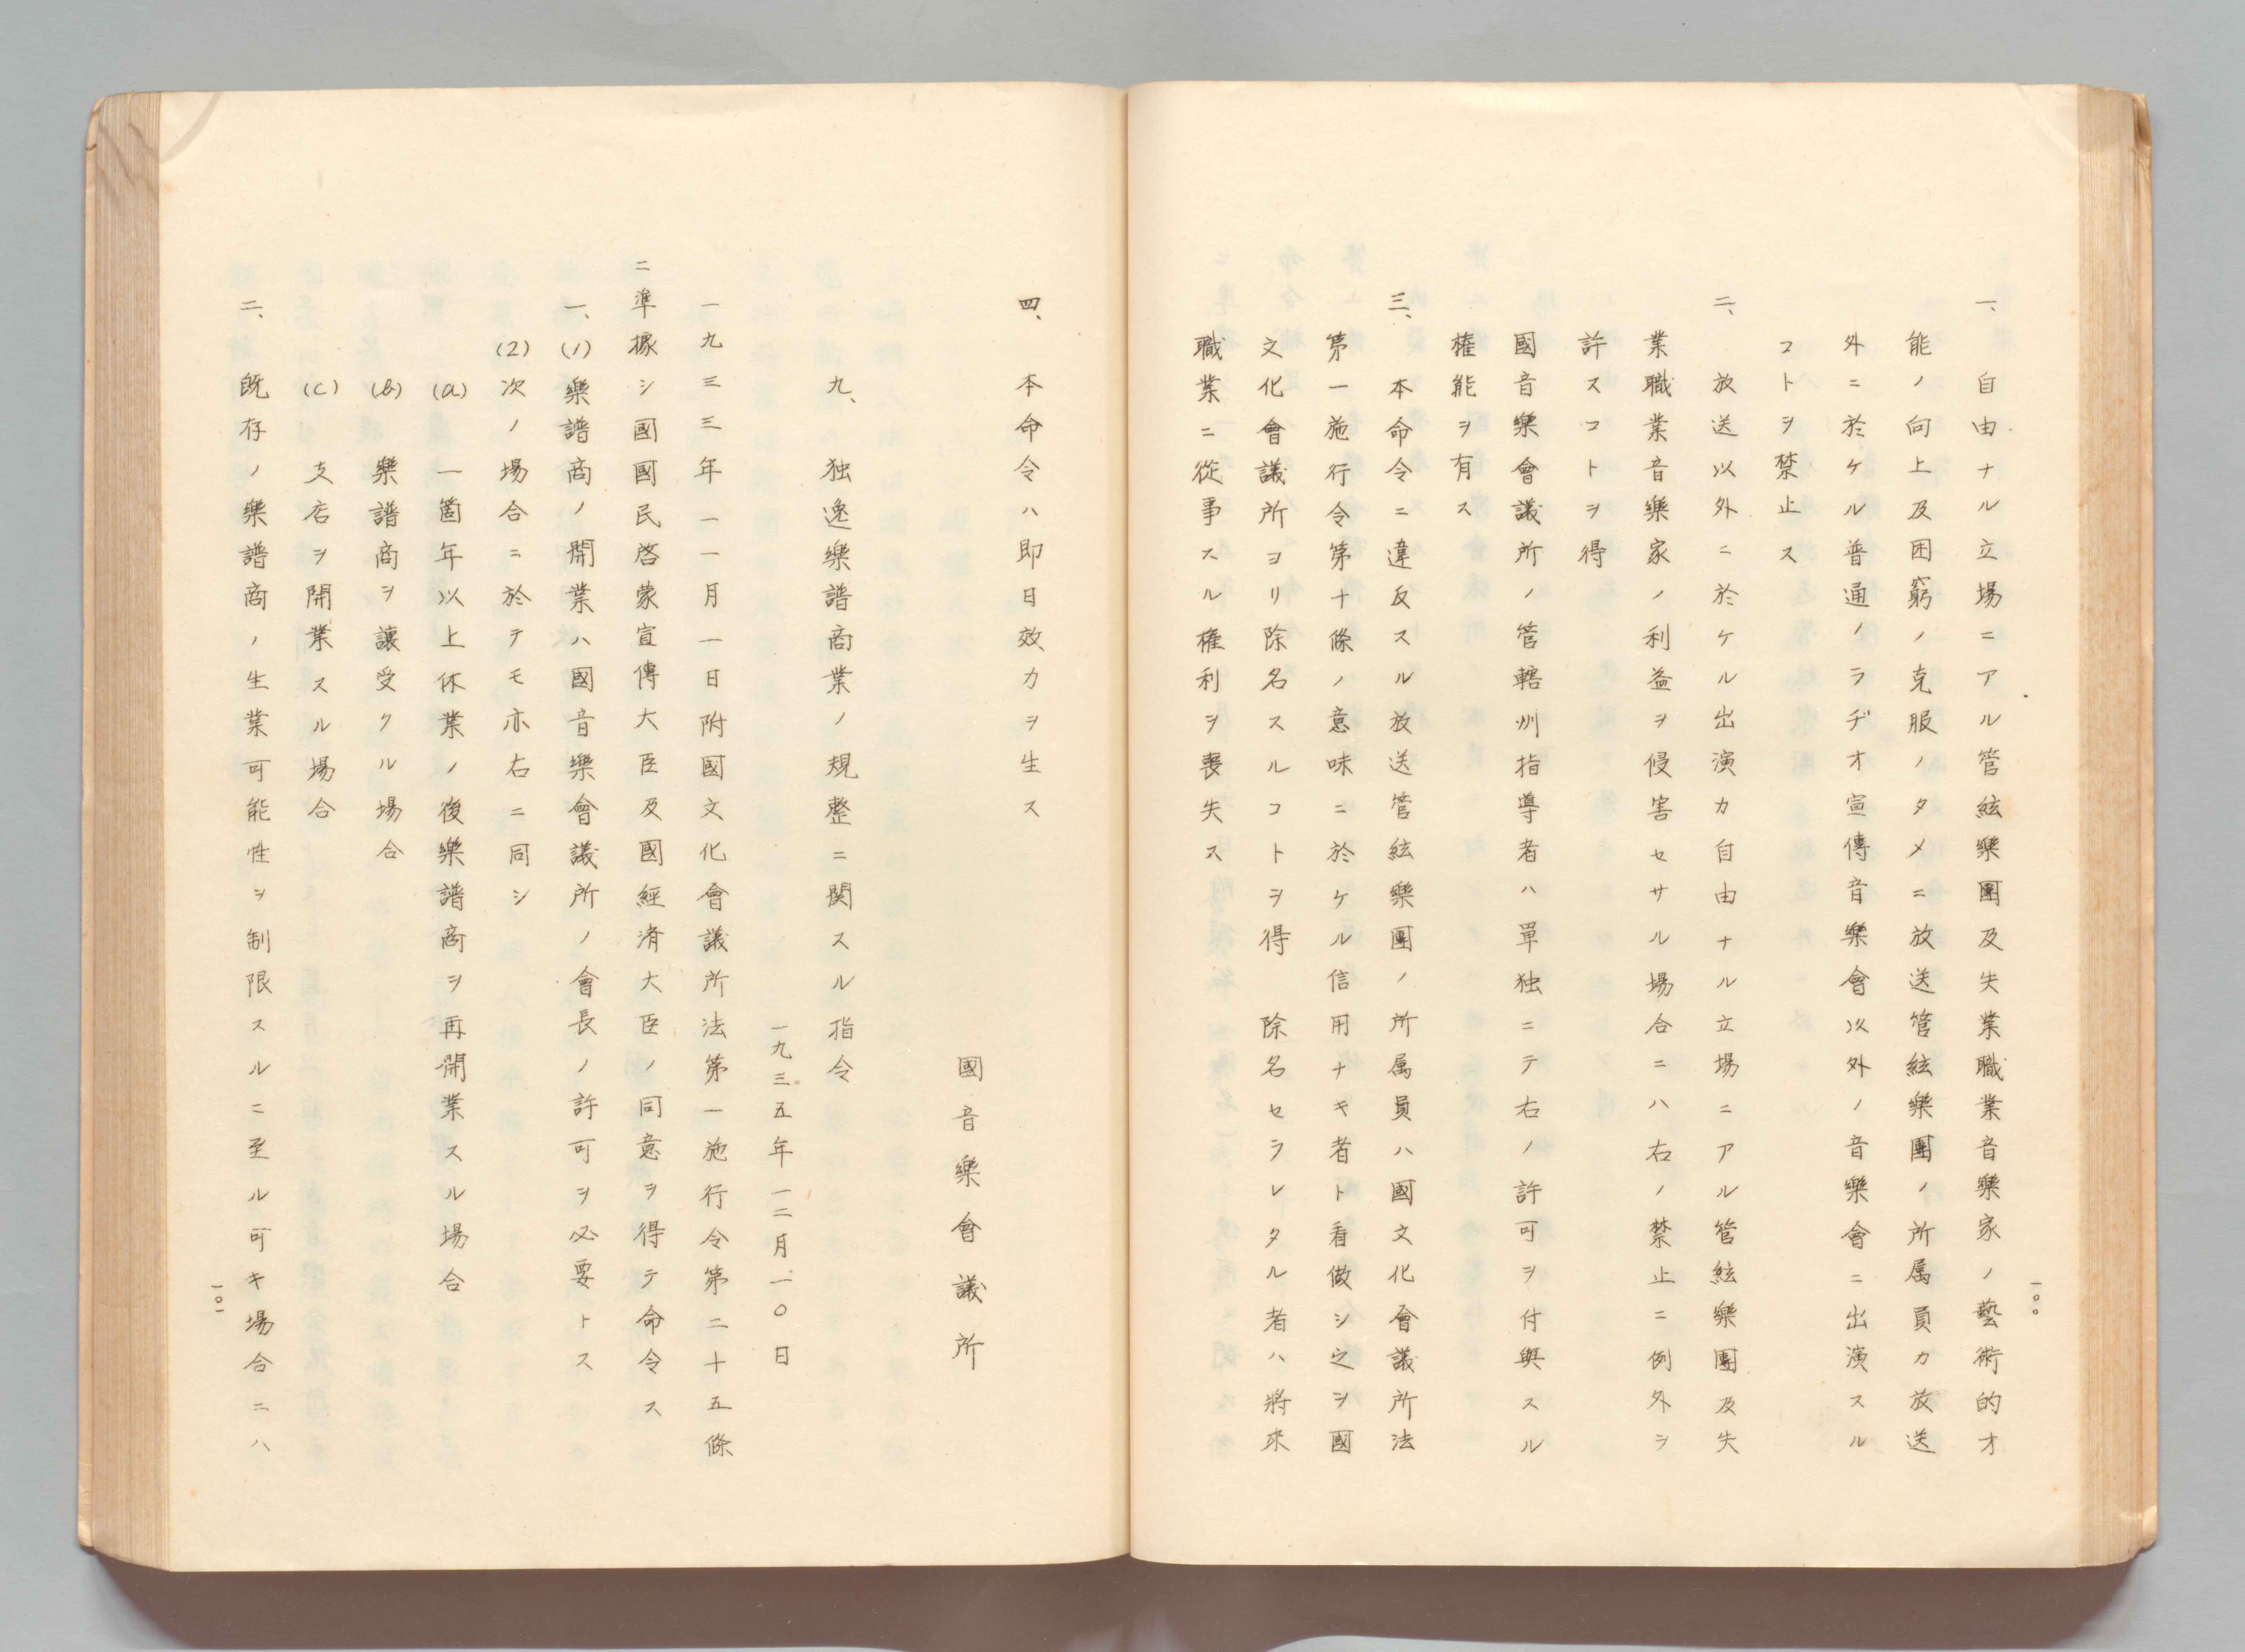 一、自由ナル立場ニアル管絃樂團及失業職業音樂家ノ藝術的才
能ノ向上及困窮ノ克服ノタメニ放送管絃樂團ノ所属員カ放送
外ニ於ケル普通ノラヂオ宣傳音樂會以外ノ音樂會ニ出演スル
コトヲ禁止ス
二、放送以外ニ於ケル出演カ自由ナル立場ニアル管絃樂團及失
業職業音樂家ノ利益ヲ侵害セサル場合ニハ右ノ禁止ニ例外ヲ
許スコトヲ得
國音樂會議所ノ管轄州指導者ハ單独ニテ右ノ許可ヲ付與スル
権能ヲ有ス
三、本命令ニ違反スル放送管絃樂團ノ所属員ハ國文化會議所法
第一施行令第十條ノ意味ニ於ケル信用ナキ者ト看做シ之ヲ國
文化會議所ヨリ除名スルコトヲ得 除名セラレタル者ハ將來
職業ニ從事スル權利ヲ喪失ス
一〇〇
四、本命令ハ即日效力ヲ生ス
國音樂會議所
九、独逸樂譜商業ノ規整ニ関スル指令
一九三五年一二月一〇日
一九三三年一一月一日附國文化會議所法第一施行令第二十五條
ニ準據シ國國民啓蒙宣傳大臣及國經済大臣ノ同意ヲ得テ命令ス
一、(1)樂譜商ノ開業ハ國音樂會議所ノ會長ノ許可ヲ必要トス
(2)次ノ場合ニ於テモ亦右ニ同シ
(a)一箇年以上休業ノ後樂譜商ヲ再開業スル場合
(b)樂譜商ヲ讓受クル場合
(c)支店ヲ開業スル場合
二、既存ノ樂譜商ノ生業可能性ヲ制限スルニ至ル可キ場合ニハ
一〇一